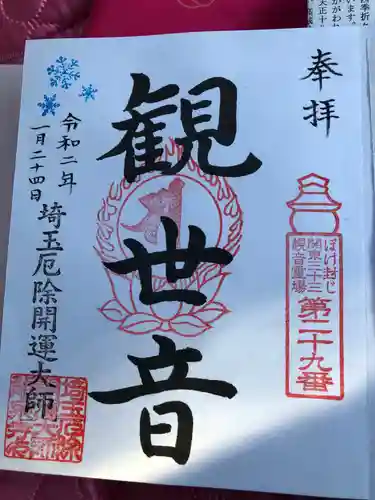 奉拝
ぼけ封じ
関東三十三
観音霊場
第二十九番
観世音
令和二年
一月二十四日
埼玉厄除開運大師
埼玉厄除